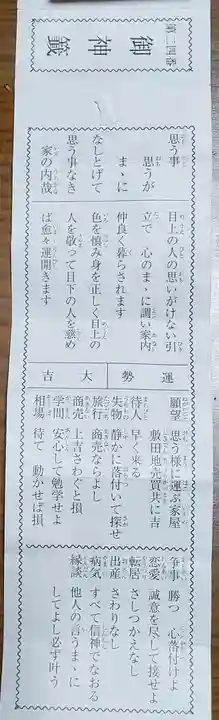 第二四番
御神籤
思う事
思うが
まゝに
なしとげて
思う事なき
家の内哉
目上の人の思いがけない引
立で 心のまゝに調い家内
仲良く暮らされます
色を慎み身を正しく目上の
人を敬って目下の人を慰め
ば愈々運開きます
運勢 大吉
願望 思う様に運ぶ家屋
敷田地売買共に吉
待人 早く来る
失物 静かに落付いて探せ
旅行 商売ならよし
商売 上吉さわぐと損
学問 安心して勉学せよ
相場 待て 動かせば損
争事 勝つ 心落付けよ
恋愛 誠意を尽して接せよ
転居 さしつかえなし
出産 さわりなし
病気 すべて信神でなおる
縁談 他人の言うまゝに
してよし必ず叶う